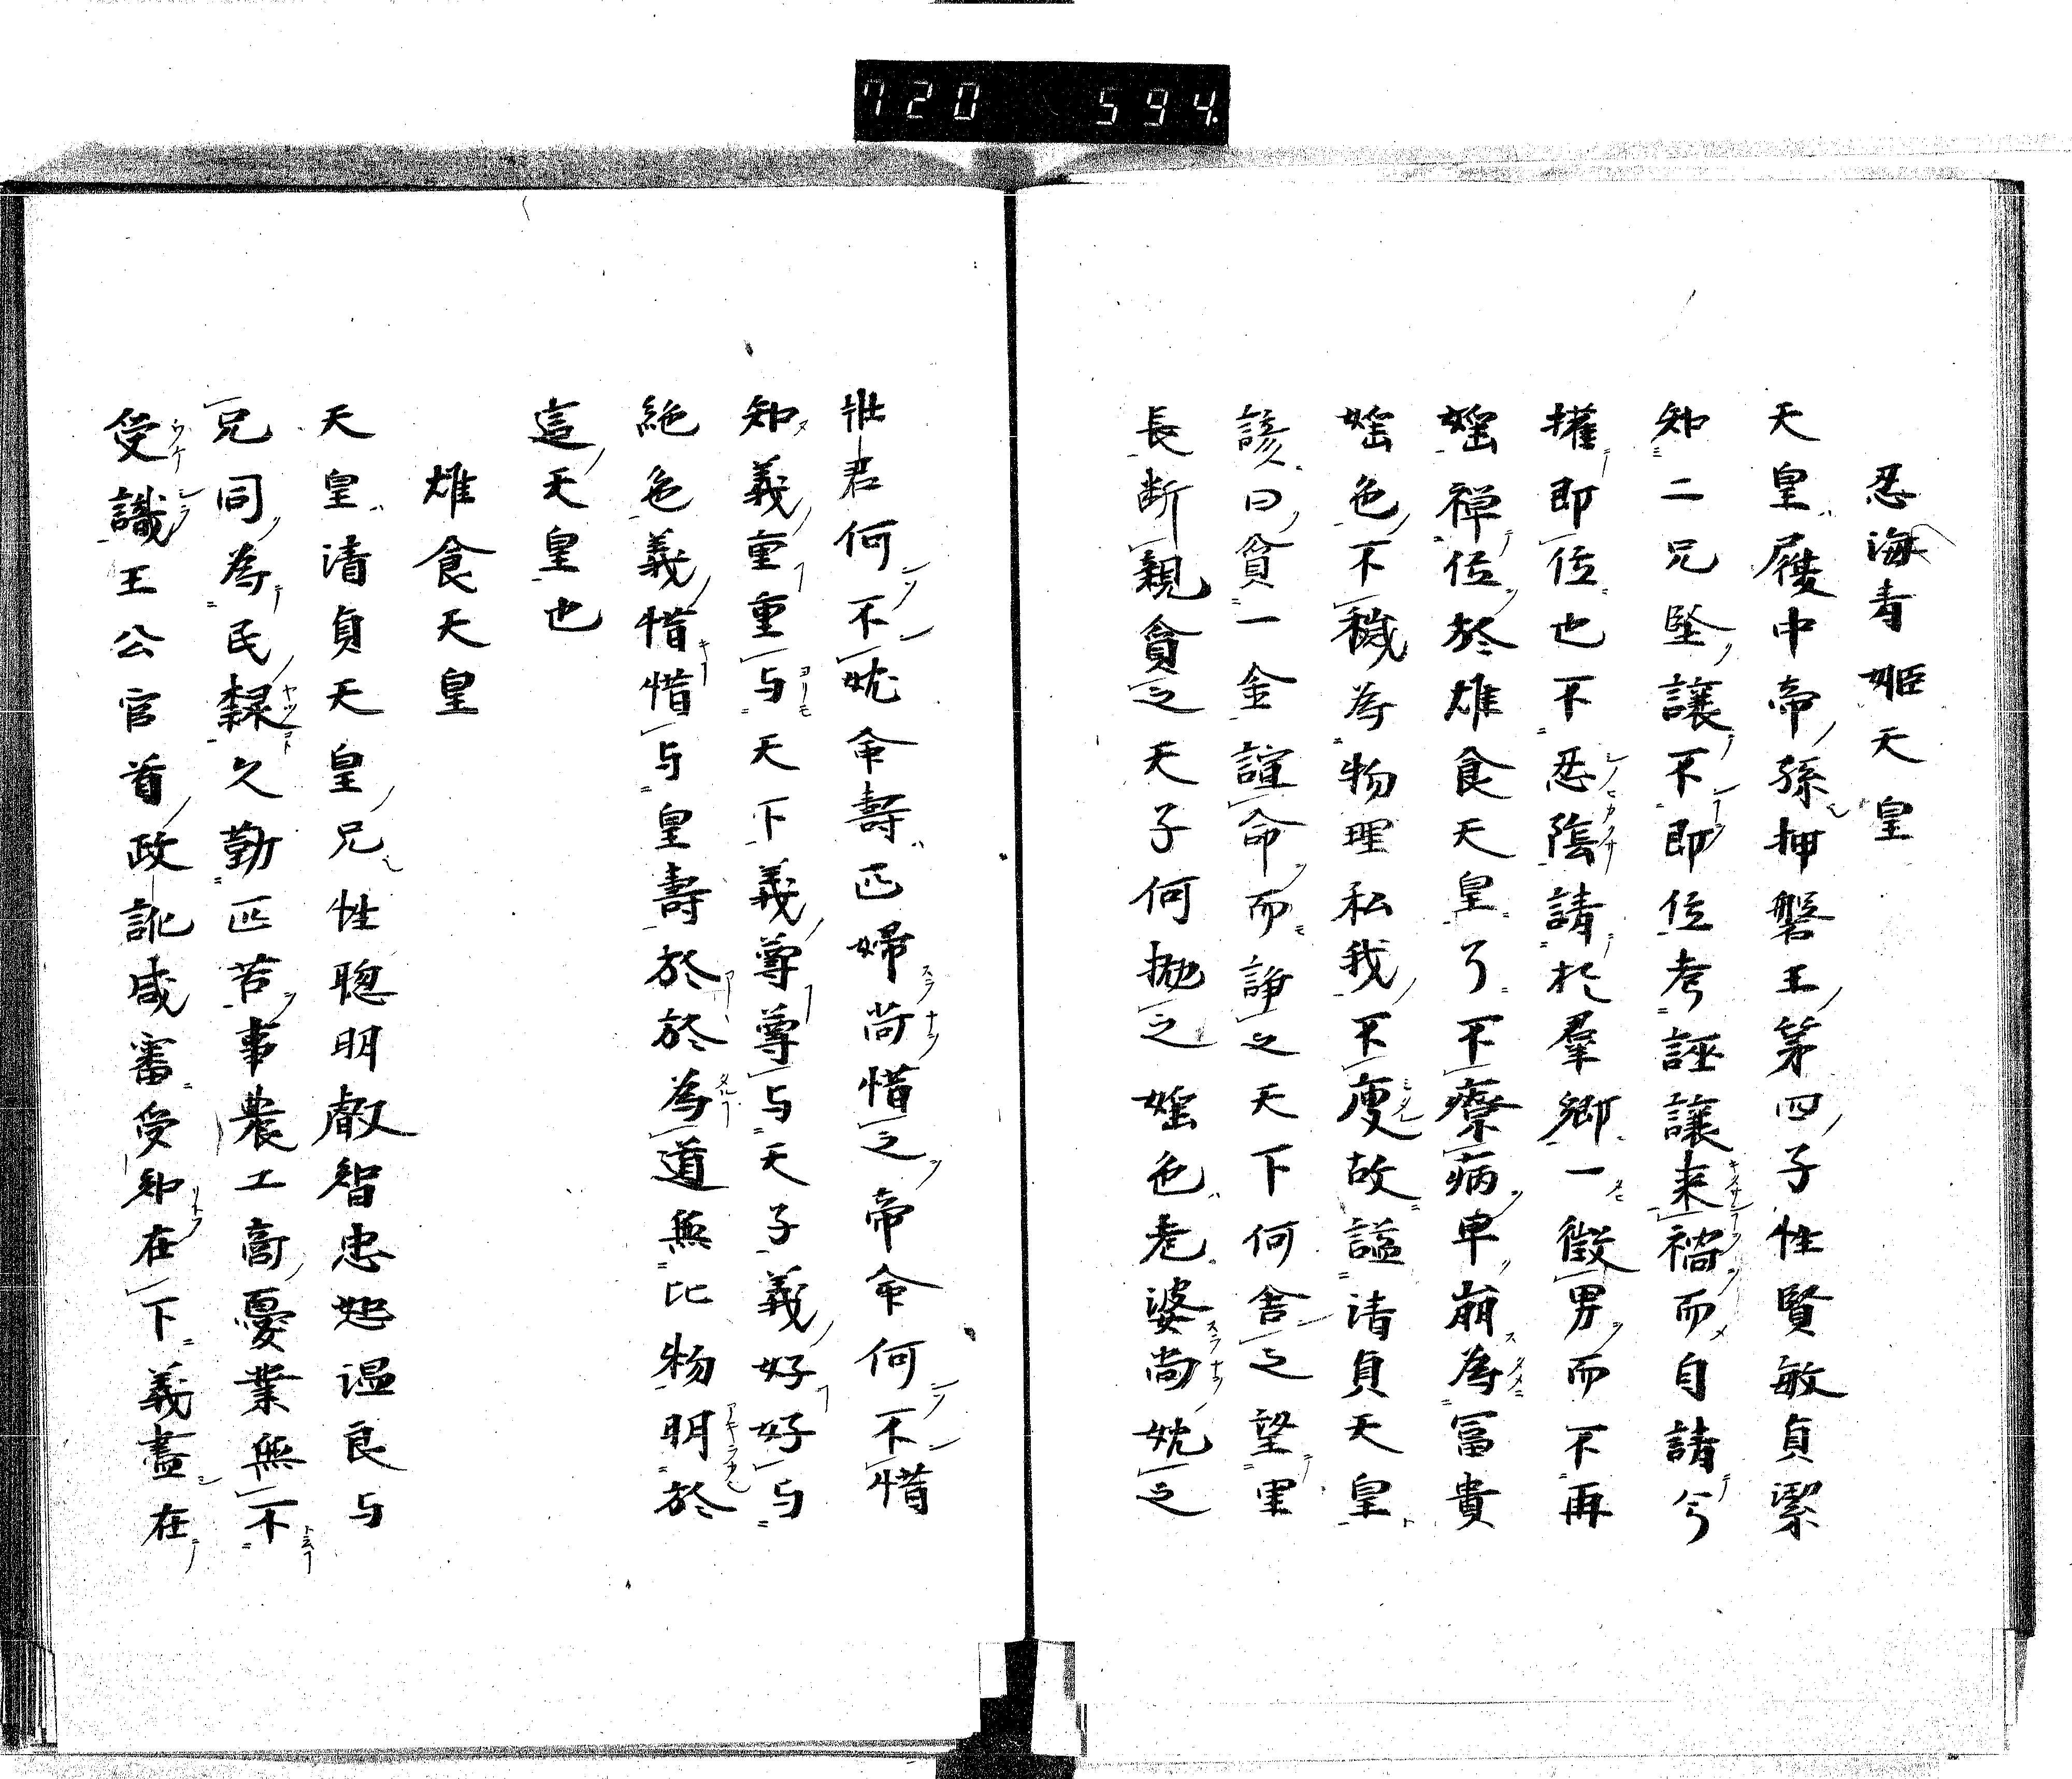 720 594.
忍海青姫天皇
天皇履中帝孫押磐王第四子性賢敏貞潔
知二兄堅讓不即位考誣讓来禍而自請今
攉即位也不忍陰請於羣卿一徴男而不再
婬禅位於雄食天皇了不療病卑崩為冨貴
婬色不穢為物理私我不廋故謚清貞天皇
諺曰貧一金誼命而諍之天下何舎之望里
長断親貪之天子何拋之婬色老婆尚妉之
壮君何不妉命壽匹婦尚惜之帝命何不惜
知義重重与天下義尊尊与天子義好好与
絶色義惜惜与皇壽於於為道無比物明於
這天皇也
雄食天皇
天皇清貞天皇兄性聰明叡智忠恕温良与
兄同為民隷久勤匹苦事農工啇憂業無不
受識王公官首政訛咸審受知在下義盡在